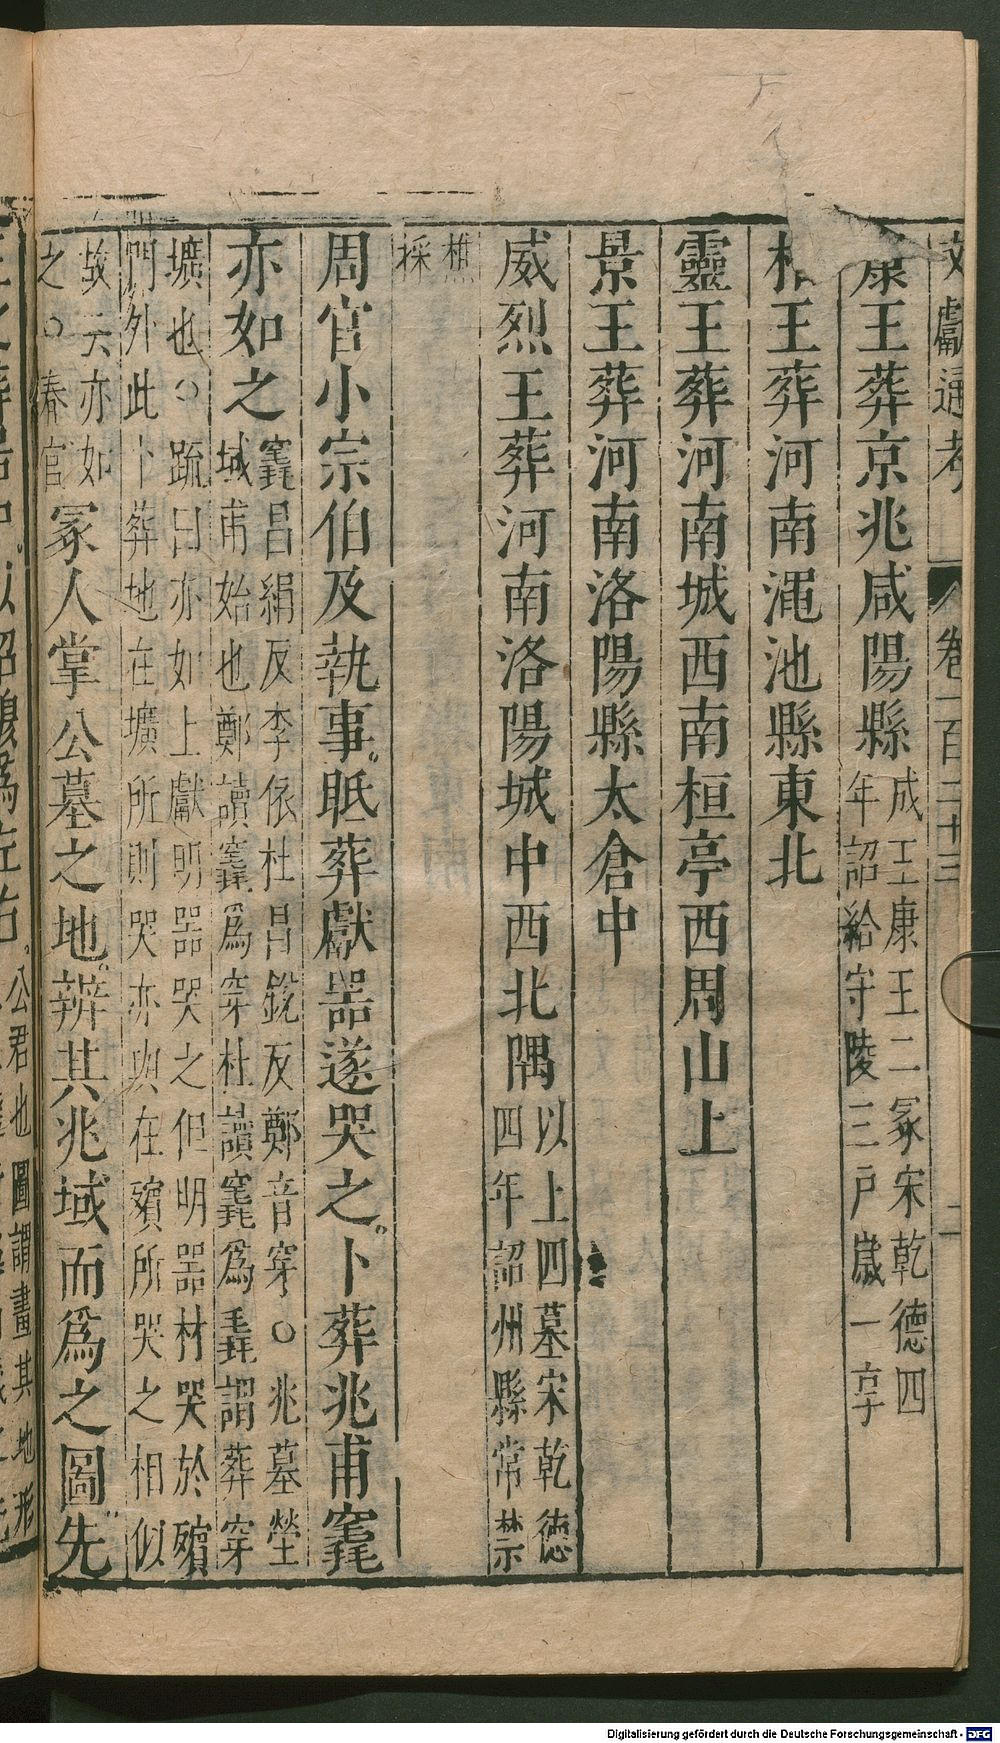 文獻通考 卷一百二十三 二
康王葬京兆咸陽縣成王康王二冢宋乾德四年詔給守陵三戶歲一享
王葬河南澠池縣東北
靈王葬河南城西南桓亭西周山上
景王葬河南洛陽縣太倉中
威烈王葬河南洛陽城中西北隅以上四墓宋乾德四年詔州縣常禁
樵採
周官小宗伯及執事眡葬獻器遂哭之卜葬兆甫竁
亦如之竁昌絹反李依杜昌銳反鄭音穿○兆墓塋域甫始也鄭讀竁爲穿杜讀竁爲毳謂葬穿
壙也○疏曰亦如上獻明器哭之但明器材哭於殯門外此卜葬地在壙所則哭亦與在殯所哭之相似
故云亦如之○春官冢人掌公墓之地辨其兆域而爲之圖先
公君也圖謂畫其地形
Digitalisierung gefördert durch die Deutsche Forschungsgemeinschaft - DFG